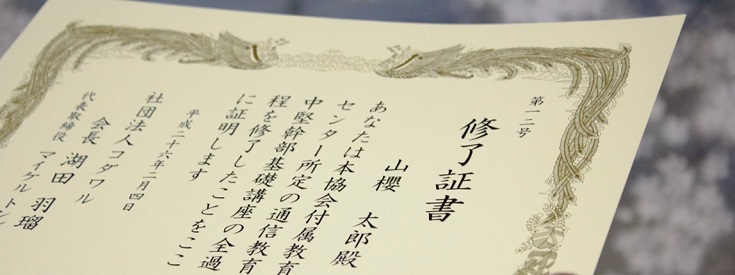 第一二号
修了証書
山櫻 太郎殿
あなたは本協会付属教育
センター所定の通信教育
中堅幹部基礎講座の全過
程を修了したことをここ
に証明します
平成二十六年二月四日
社団法人コダワル
会長 湖田 羽瑠
代表取締役 マイケルトン